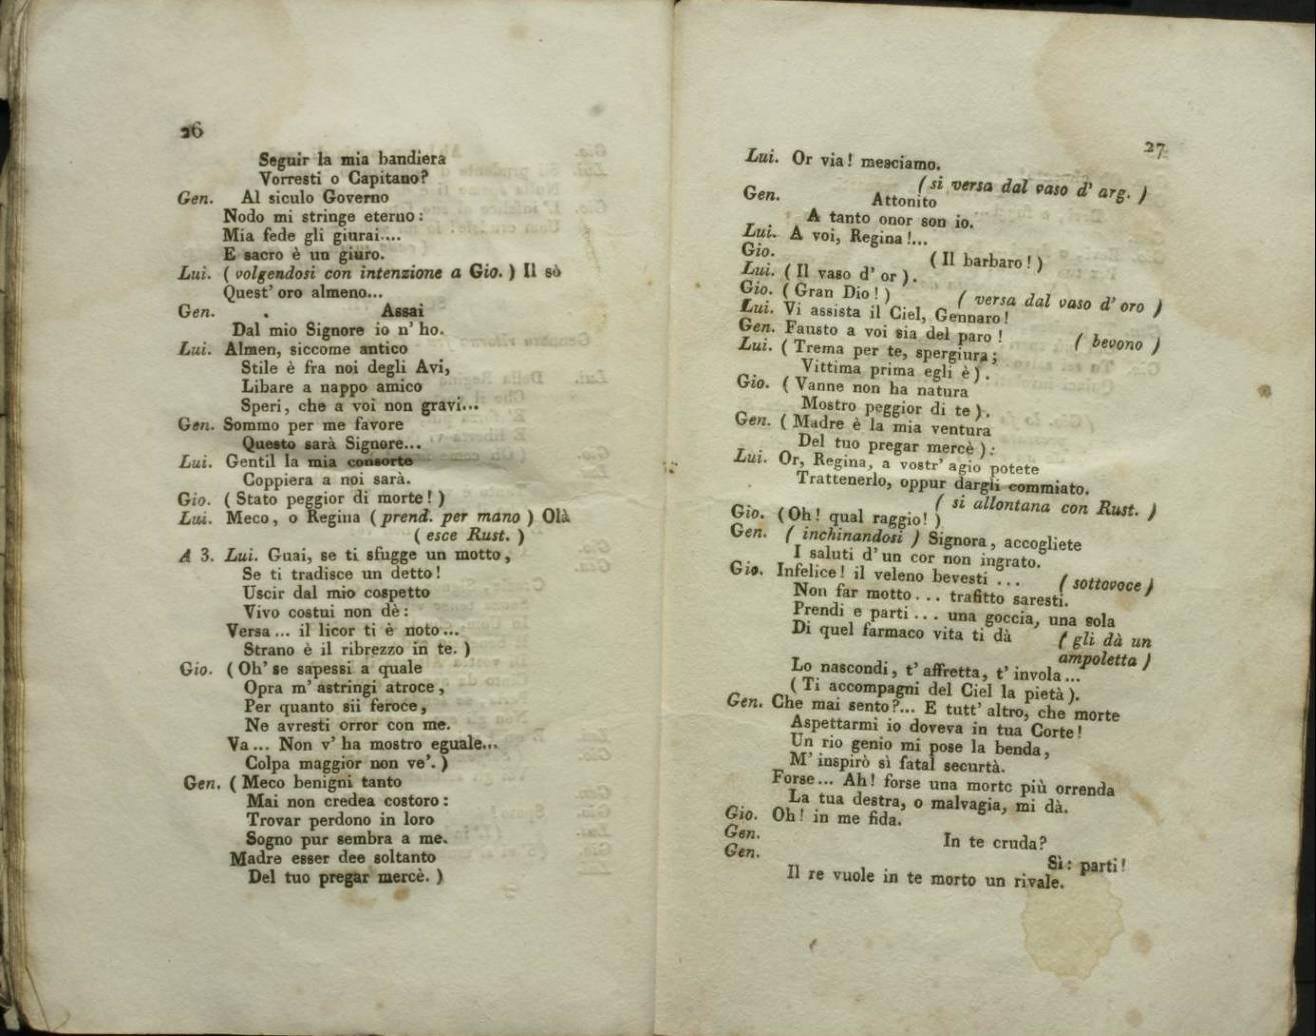 26
Seguir la mia bandiera
Vorresti o Capitano?
Gen. Al siculo Governo
Nodo mi stringe eterno:
Mia fede gli giurai....
E sacro è un giuro.
Lui. ( volgendosi con intenzione a Gio. ) Il sò
Quest' oro almeno...
Gen. Assai
Dal mio Signore io n' ho.
Lui. Almen, siccome antico
Stile è fra noi degli Avi,
Libare a nappo amico
Speri, che a voi non gravi...
Gen. Sommo per me favore
Questo sarà Signore...
Lui. Gentil la mia consorte
Coppiera a noi sarà.
Gio. ( Stato peggior di morte! )
Lui. Meco, o Regina ( prend. per mano ) Olà
( esce Rust. )
A 3. Lui. Guai, se ti sfugge un motto,
Se ti tradisce un detto!
Uscir dal mio cospetto
Vivo costui non dè:
Versa... il licor ti è noto...
Strano è il ribrezzo in te. )
Gio. ( Oh' se sapessi a quale
Opra m' astringi atroce,
Per quanto sii feroce,
Ne avresti orror con me.
Va... Non v' ha mostro eguale...
Colpa maggior non ve'. )
Gen. ( Meco benigni tanto
Mai non credea costoro:
Trovar perdono in loro
Sogno pur sembra a me.
Madre esser dee soltanto
Del tuo pregar mercè. )
27
Lui. Or via! mesciamo.
( si versa dal vaso d' arg. )
Gen. Attonito
A tanto onor son io.
Lui. A voi, Regina!...
Gio. ( Il barbaro! )
Lui. ( Il vaso d' or ).
Gio. ( Gran Dio! ) ( versa dal vaso d' oro )
Lui. Vi assista il Ciel, Gennaro!
Gen. Fausto a voi sia del paro! ( bevono )
Lui. ( Trema per te, spergiura;
Vittima prima egli è ).
Gio. ( Vanne non ha natura
Mostro peggior di te ).
Gen. ( Madre è la mia ventura
Del tuo pregar mercè ):
Lui. Or, Regina, a vostr' agio potete
Trattenerlo, oppur dargli commiato.
( si allontana con Rust. )
Gio. (Oh! qual raggio! )
Gen. ( inchinandosi ) Signora, accogliete
I saluti d' un cor non ingrato.
Gio. Infelice! il veleno bevesti ... ( sottovoce )
Non far motto... trafitto saresti.
Prendi e parti... una goccia, una sola
Di quel farmaco vita ti dà ( gli dà un
ampoletta )
Lo nascondi, t' affretta, t' invola...
( Ti accompagni del Ciel la pietà ).
Gen. Che mai sento?... E tutt' altro, che morte
Aspettarmi io doveva in tua Corte!
Un rio genio mi pose la benda,
M' inspirò sì fatal securtà.
Forse... Ah! forse una morte più orrenda
La tua destra, o malvagia, mi dà.
Gio. Oh! in me fida.
Gen. In te cruda?
Gen. Sì: parti!
Il re vuole in te morto un rivale.